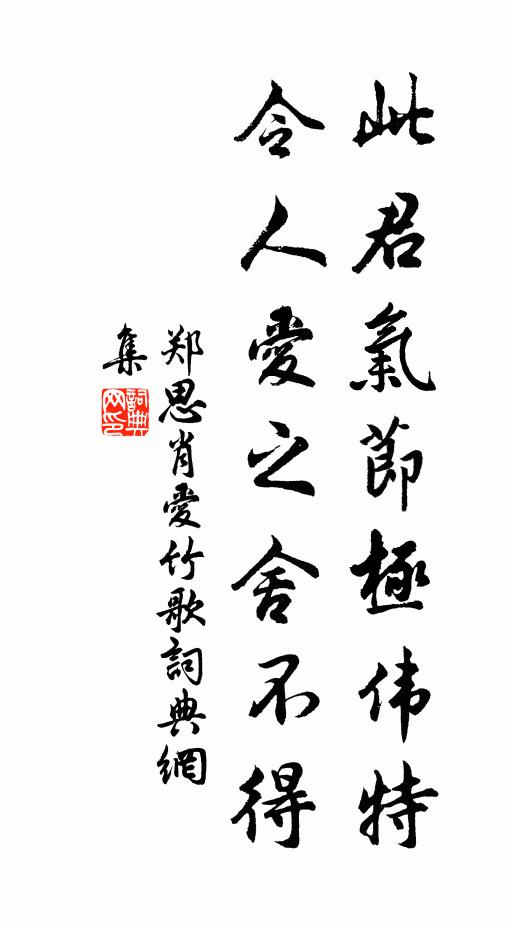 此君氣節極伟特
令人愛之舍不得
郑思肖愛竹歌詞典網
集
詞典
网印